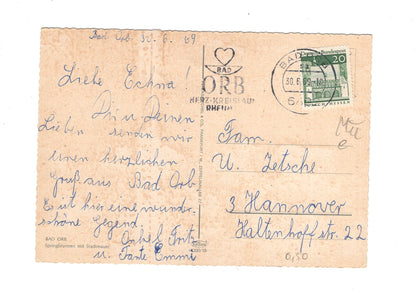 Bad Orb 30.6.69
Liebe Echna!
Dir u. Deinen
Lieben senden wir
einen herzlichen
Gruß aus Bad Orb.
Es ist hier eine wunder-
schöne Gegend.
Onkel Fritz
u. Tante Emmi
BAD ORB
Springbrunnen mit Stadtmauer
BAD
ORB
HERZ-KREISLAUF
RHEUMA
BAD ORB
30.6.69
Deutsche Bundespost
20
Fam.
U. Jetsche
3 Hannover
Haltenhoffstr. 22
0,50